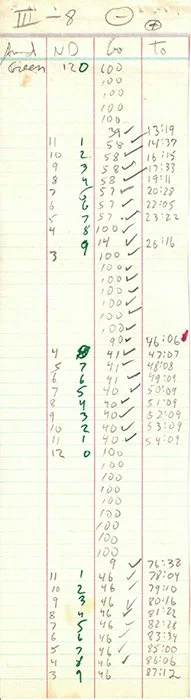 III - 8 ⊖ ⊕
ND Go To
Green 120 600
100
100
100
100
39 ✓ 13:19
11 1 58 ✓ 14:37
10 2 58 ✓ 16:15
9 3 58 ✓ 17:33
8 4 58 ✓ 19:11
7 5 57 ✓ 20:28
6 6 57 ✓ 22:05
5 7 57 ✓ 23:22
4 8 100 ✓
9 14 ✓ 26:16
3 100 ✓
100 ✓
100 ✓
100 ✓
100 ✓
100 ✓
90 ✓ 46:06
4 8 41 ✓ 47:07
5 7 41 ✓ 48:08
6 6 41 ✓ 49:09
7 5 40 ✓ 50:09
8 4 40 ✓ 51:09
9 3 40 ✓ 52:09
10 2 40 ✓ 53:09
11 1 40 ✓ 54:09
12 0 100
100
100
100
100
100
100
100
100
9 ✓ 76:38
11 1 46 ✓ 78:04
10 2 46 ✓ 79:10
9 3 46 ✓ 80:16
8 4 46 ✓ 81:22
7 5 46 ✓ 82:28
6 6 46 ✓ 83:34
5 7 46 ✓ 85:00
4 8 46 ✓ 86:06
3 9 46 87:12